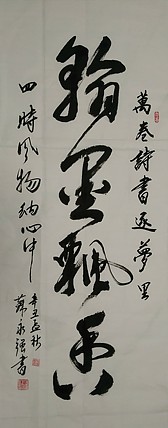 萬卷詩書逐夢里
翰墨飄香
四時風物納心中
辛丑孟秋
蘇永強書